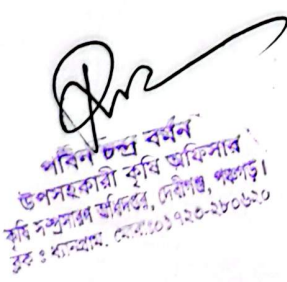 পবিন চন্দ্র বর্মন
উপসহকারী কৃষি অফিসার
কৃষি সম্প্রসারণ অধিদপ্তর, দেবীগঞ্জ, পঞ্চগড়।
ব্লক : মোবাঃ০১৭২০-২৮০৬২০